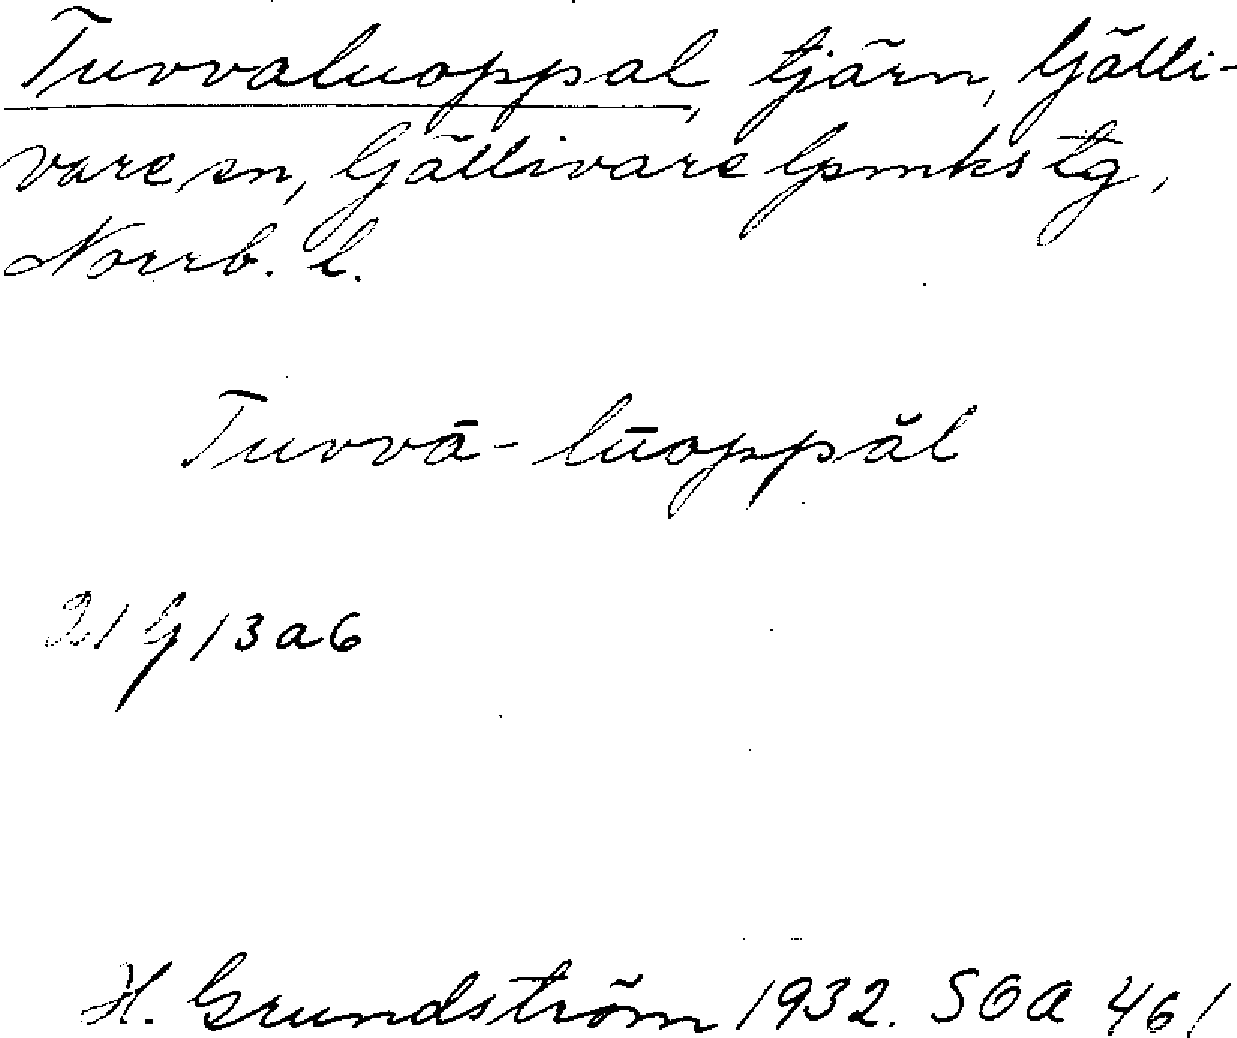 Tuvvaluoppal, tjärn, Gälli-
vare sn, Gällivare lpmks tg,
Norrb. l.
Tuvvā-lūoppăl
21 G 13 a 6
H. Grundström 1932. SOA 461